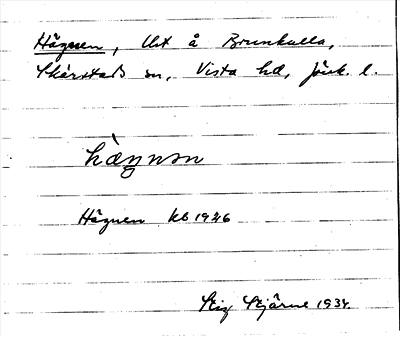 Hägnen, Urt å Brunkulla,
Skärstads sn, Vista hd, Jönk. l.
hägnən
Hägnen kb 1926
Stig Stjärne 1934.